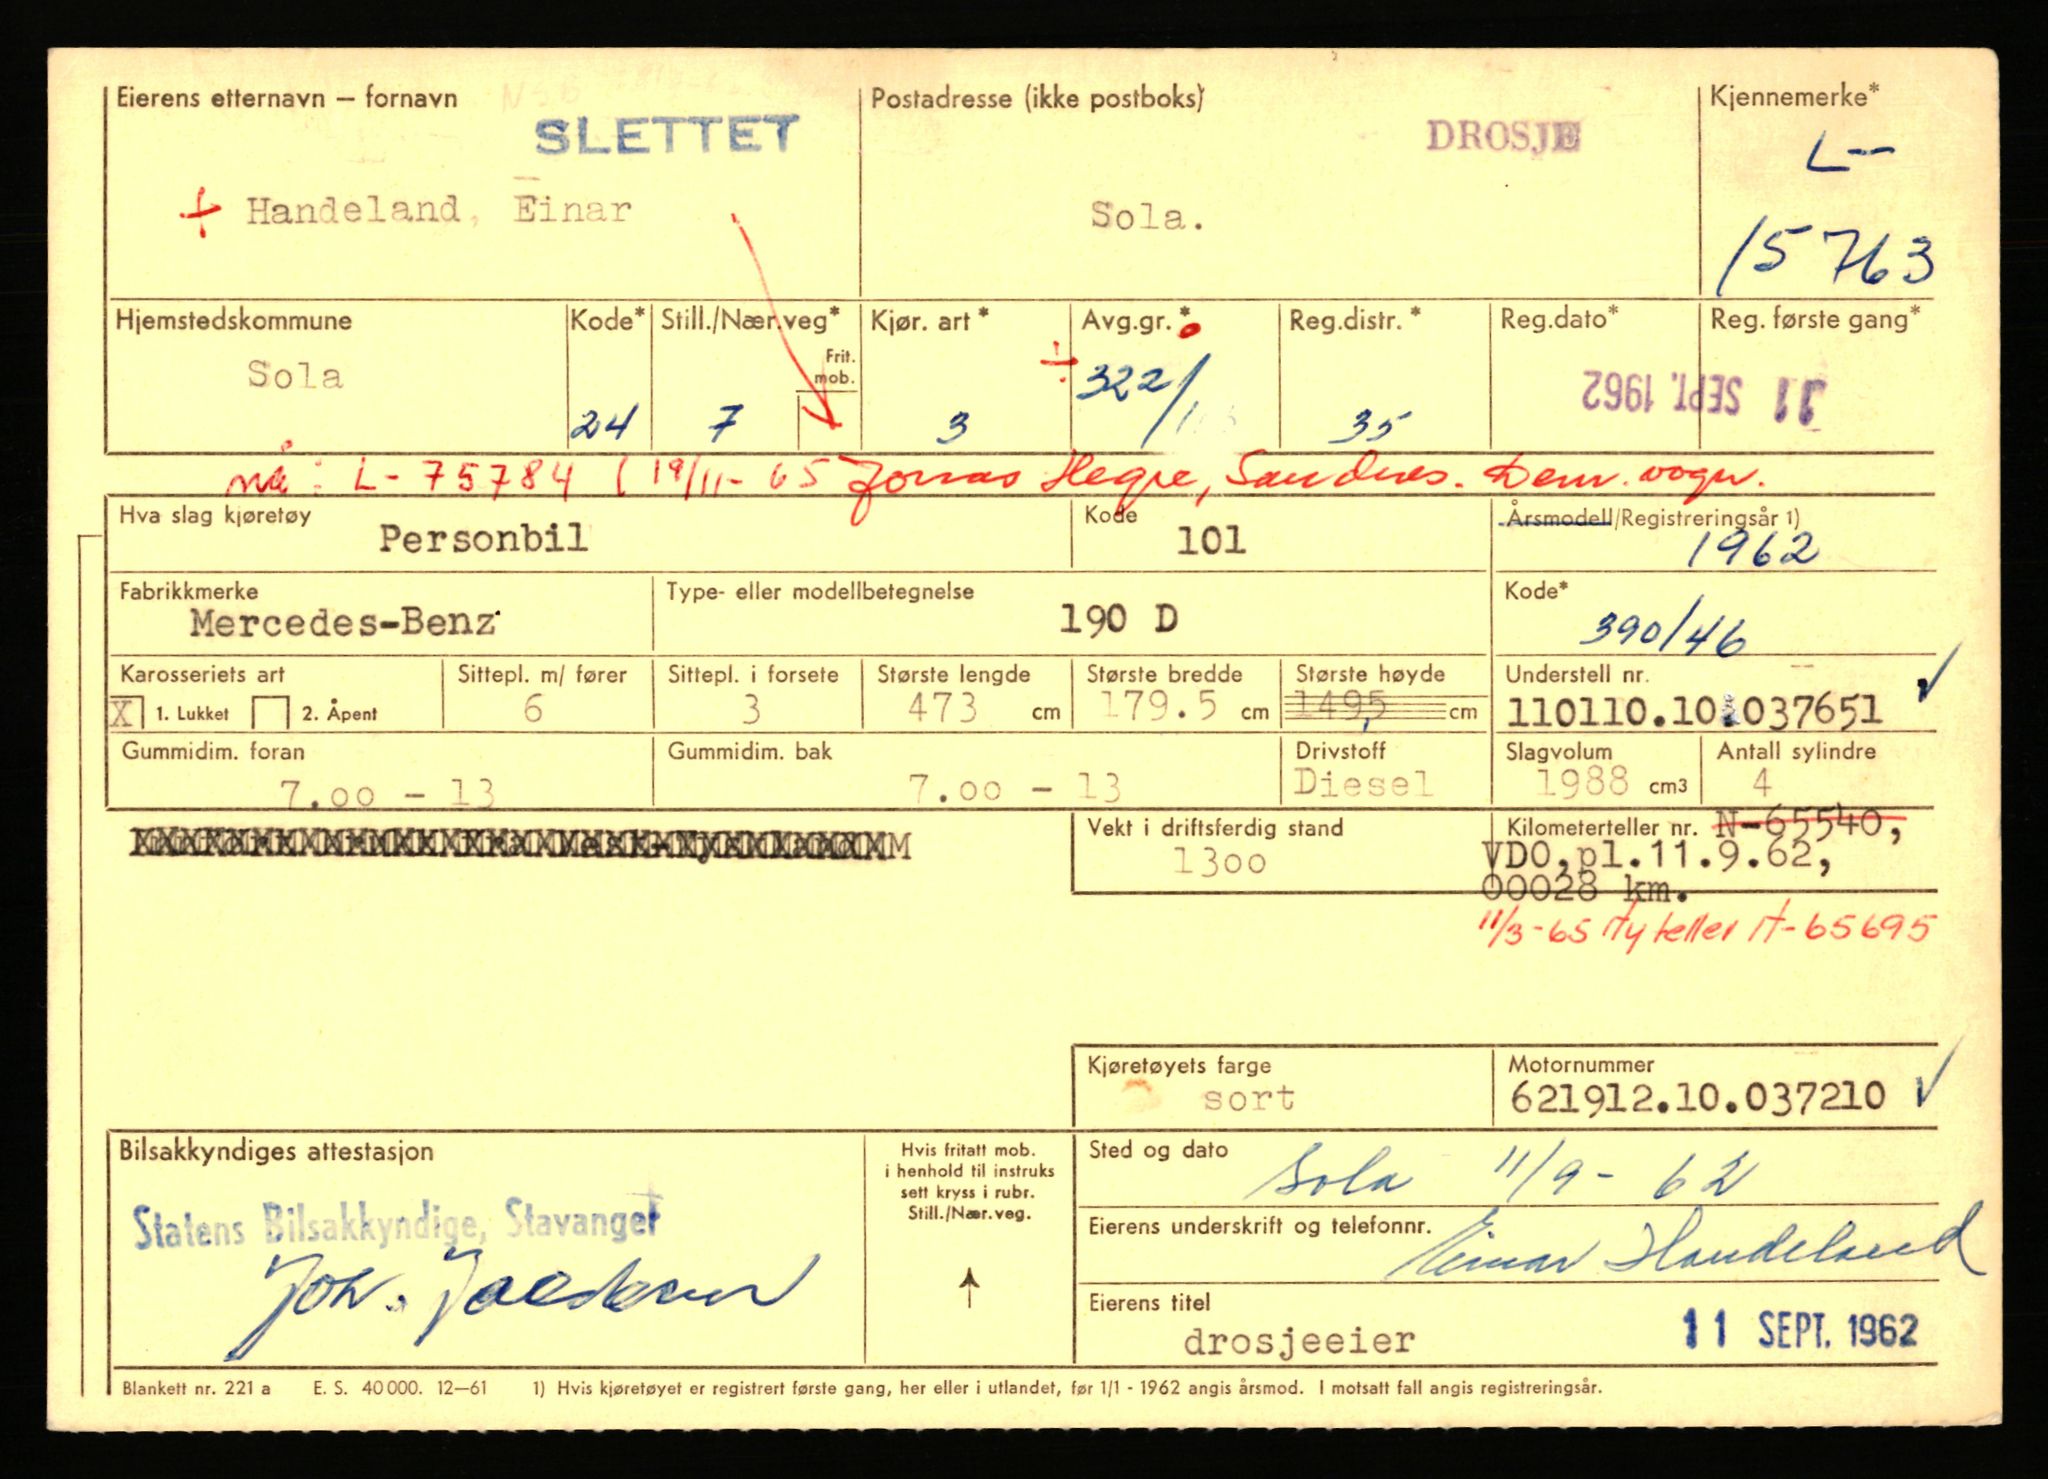 Eierens etternavn – fornavn
SLETTET
+ Handeland, Einar
Postadresse (ikke postboks)
DROSJE
Sola.
Kjennemerke*
L--
15763
Hjemstedskommune
Sola
Kode*
24
Still./Nær.veg*
Frit. mob.
7
Kjør. art*
3
Avg.gr.*
÷ 322/
Reg.distr.*
35
Reg.dato*
Reg. første gang*
11 SEPT. 1962
nå: L-75784 (19/11-65 Jonas Hegre, Sandnes. Dem. vogn.
Hva slag kjøretøy
Personbil
Kode
101
Årsmodell/Registreringsår 1)
1962
Fabrikkmerke
Mercedes-Benz
Type- eller modellbetegnelse
190 D
Kode*
390/46
Karosseriets art
X 1. Lukket 2. Åpent
Sittepl. m/ fører
6
Sittepl. i forsete
3
Største lengde
473 cm
Største bredde
179.5 cm
Største høyde
149,5 cm
Understell nr.
110110.10.037651
Gummidim. foran
7.00 - 13
Gummidim. bak
7.00 - 13
Drivstoff
Diesel
Slagvolum
1988 cm3
Antall sylindre
4
Vekt i driftsferdig stand
1300
Kilometerteller nr. N-65540,
VDO,pl.11.9.62,
00028 km.
11/3-65 Ny teller N-65695
Kjøretøyets farge
sort
Motornummer
621912.10.037210
Bilsakkyndiges attestasjon
Statens Bilsakkyndige, Stavanger
Joh.
Hvis fritatt mob.
i henhold til instruks
sett kryss i rubr.
Still./Nær.veg.
Sted og dato
Sola 11/9-62
Eierens underskrift og telefonnr.
Einar Handeland
Eierens titel
drosjeeier
11 SEPT. 1962
Blankett nr. 221 a E. S. 40 000. 12–61 1) Hvis kjøretøyet er registrert første gang, her eller i utlandet, før 1/1 - 1962 angis årsmod. I motsatt fall angis registreringsår.